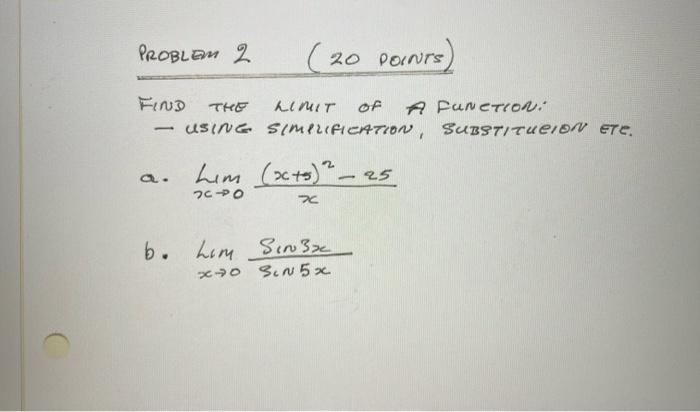 PROBLEM 2 (20 POINTS)
FIND THE LIMIT OF A FUNCTION:
— USING SIMPLIFICATION, SUBSTITUEION ETC.
a. Lim x→0 (x+5)² - 25 / x
b. Lim x→0 Sin 3x / Sin 5x